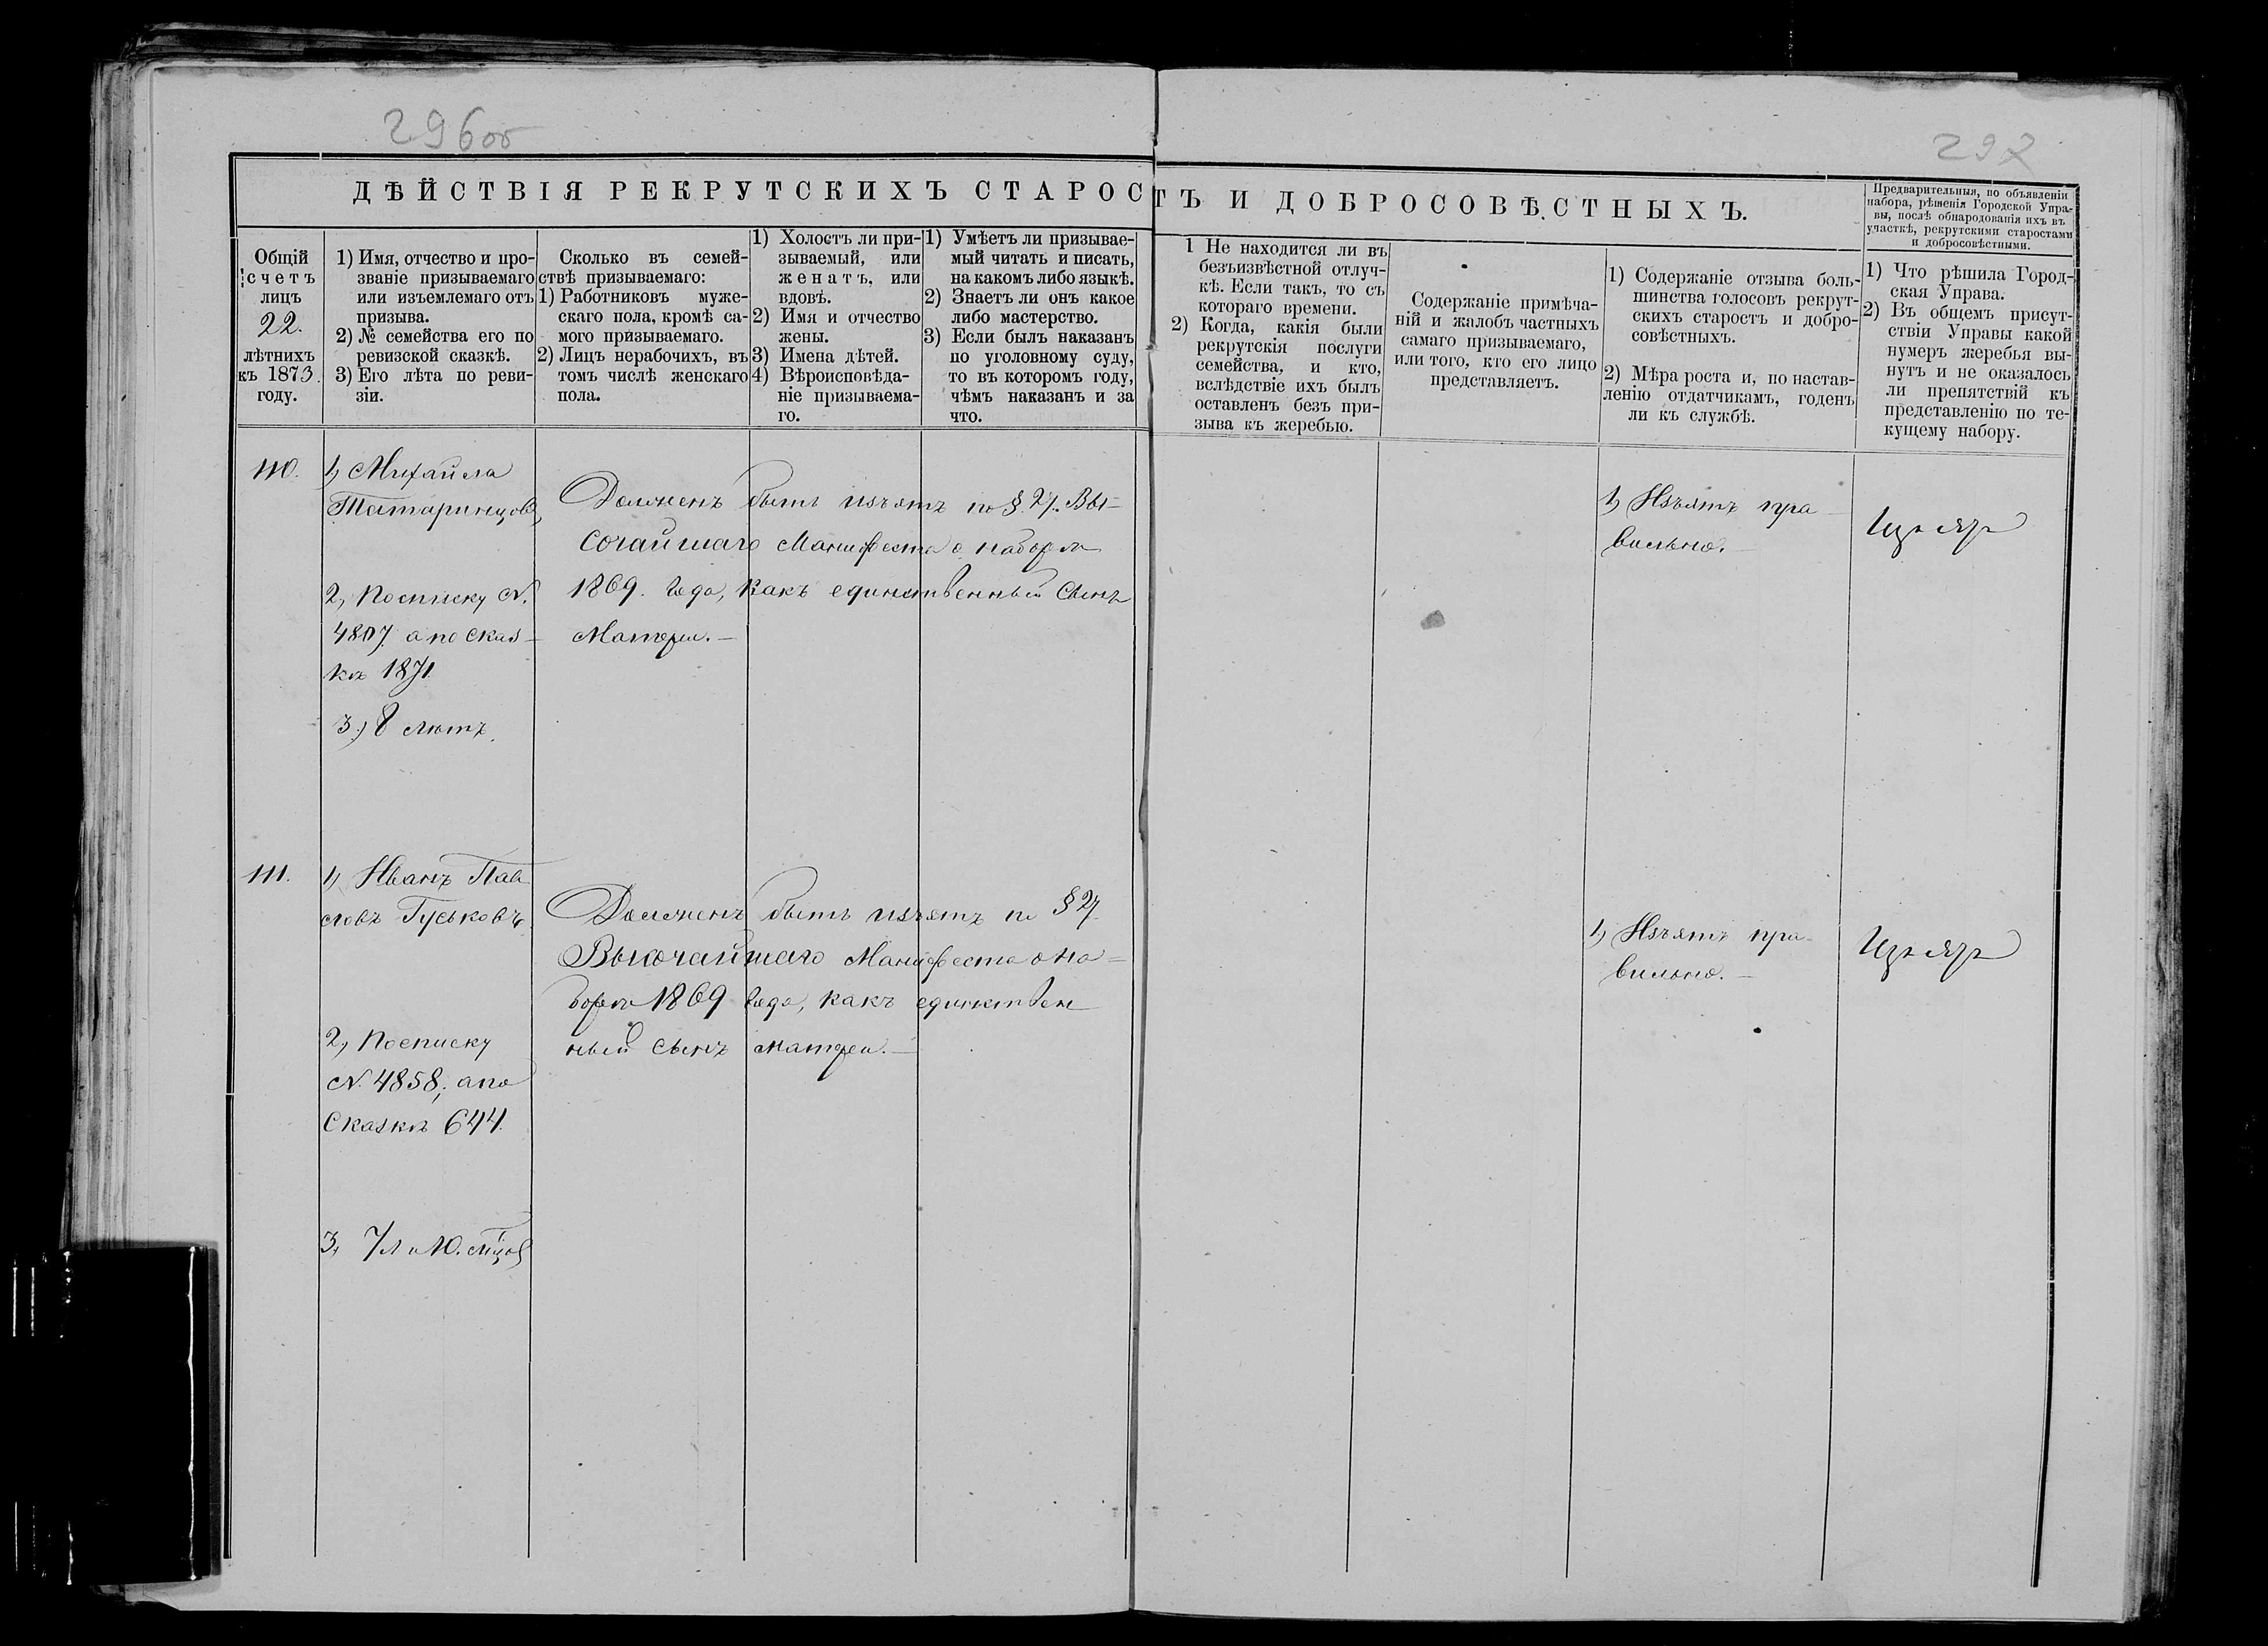 296об
297
ДѢЙСТВІЯ РЕКРУТСКИХЪ СТАРОСТЪ И ДОБРОСОВѢСТНЫХЪ.
Предварительныя, по объявленіи
набора, рѣшенія Городской Упра-
вы, послѣ обнародованія ихъ въ
участкѣ, рекрутскими старостами
и добросовѣстными.
Общій
счетъ
лицъ
22.
лѣтнихъ
къ 1873.
году.
1) Имя, отчество и про-
званіе призываемаго
или изъемлемаго отъ
призыва.
2) № семейства его по
ревизской сказкѣ.
3) Его лѣта по реви-
зіи.
Сколько въ семей-
ствѣ призываемаго:
1) Работниковъ муже-
скаго пола, кромѣ са-
мого призываемаго.
2) Лицъ нерабочихъ, въ
томъ числѣ женскаго
пола.
1) Холостъ ли при-
зываемый, или
женатъ, или
вдовъ.
2) Имя и отчество
жены.
3) Имена дѣтей.
4) Вѣроисповѣда-
ніе призываема-
го.
1) Умѣетъ ли призывае-
мый читать и писать,
на какомъ либо языкѣ.
2) Знаетъ ли онъ какое
либо мастерство.
3) Если былъ наказанъ
по уголовному суду,
то въ которомъ году,
чѣмъ наказанъ и за
что.
1 Не находится ли въ
безъизвѣстной отлуч-
кѣ. Если такъ, то съ
котораго времени.
2) Когда, какія были
рекрутскія послуги
семейства, и кто,
вслѣдствіе ихъ былъ
оставленъ безъ при-
зыва къ жеребью.
Содержаніе примѣча-
ній и жалобъ частныхъ
самаго призываемаго,
или того, кто его лицо
представляетъ.
1) Содержаніе отзыва боль-
шинства голосовъ рекрут-
скихъ старостъ и добро-
совѣстныхъ.
2) Мѣра роста и, по настав-
ленію отдатчикамъ, годенъ
ли къ службѣ.
1) Что рѣшила Город-
ская Управа.
2) Въ общемъ присут-
ствіи Управы какой
нумеръ жеребья вы-
нутъ и не оказалось
ли препятствій къ
представленію по те-
кущему набору.
110.
1) Михайла
Татаринцовъ,
2, по списку N.
4807. а по сказ-
кѣ 1871.
3.) 8 лѣтъ.
Долженъ быть изъятъ по §. 27. Вы-
сочайшаго Манифеста о наборѣ
1869. года, какъ единственный сынъ
Матери.—
1) Изъятъ пра-
вильно.—
Изъять
111.
1) Иванъ Пав-
ловъ Гуськовъ.
2, по списку
N. 4858, а по
Сказкѣ 644.
3, 7 л и 10. мѣсяц
Долженъ быть изъятъ по § 27.
Высочайшаго Манифеста о на-
борѣ 1869 года, какъ единствен
ный сынъ матери.—
1) Изъятъ пра-
вильно.—
Изъять